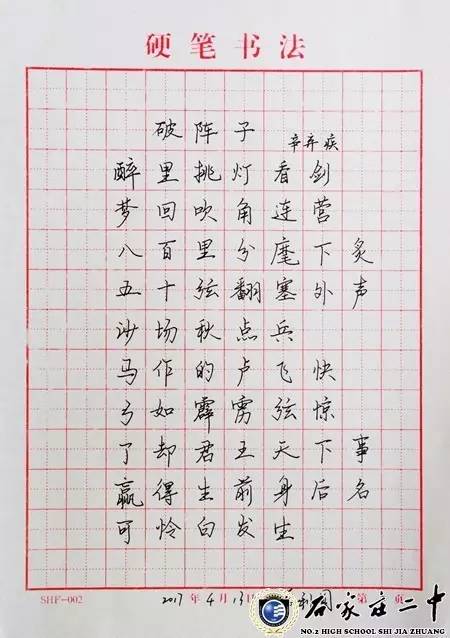 硬笔书法
破阵子 辛弃疾
醉里挑灯看剑
梦回吹角连营
八百里分麾下炙
五十弦翻塞外声
沙场秋点兵
马作的卢飞快
弓如霹雳弦惊
了却君王天下事
赢得生前身后名
可怜白发生
SHF-002 2017年4月13日 第 页
石家庄二中
NO.2 HIGH SCHOOL SHI JIA ZHUANG